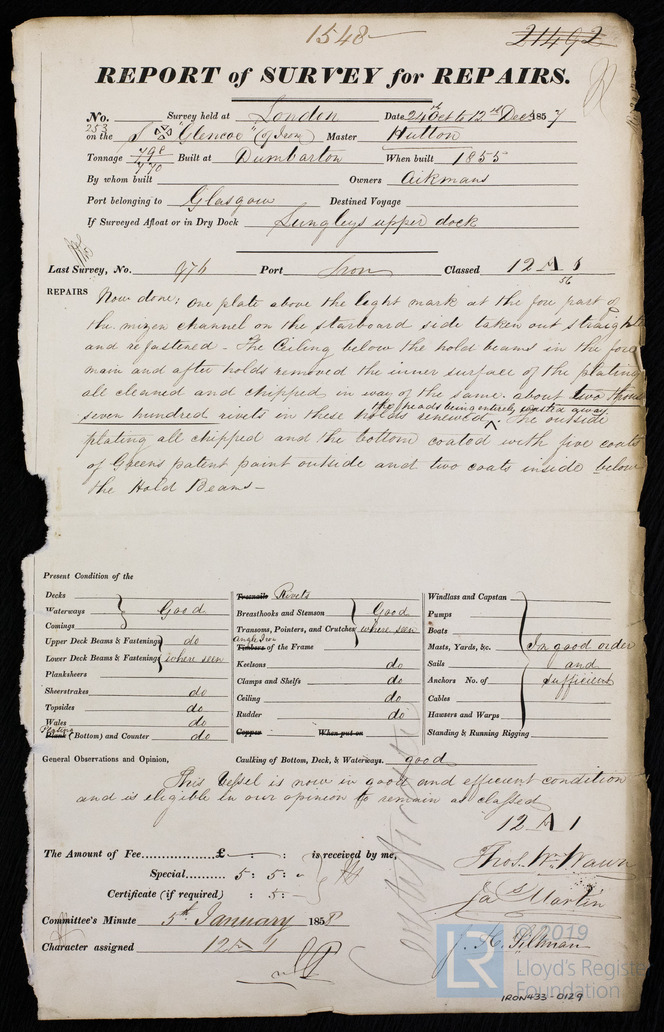 1548
21492
REPORT of SURVEY for REPAIRS.
No. 253 Survey held at London Date 24th Oct to 12th Decr 1857
on the "Glencoe" (of Iron) Master Hutton
Tonnage 798 770 Built at Dumbarton When built 1855
By whom built Owners Aikmans
Port belonging to Glasgow Destined Voyage
If Surveyed Afloat or in Dry Dock Lungleys upper dock
Last Survey, No. 976 Port Iron Classed 12 A 1
56
REPAIRS Now done; One plate above the light mark at the fore part of
the mizen channel on the starboard side taken out straight
and refastened - The Ceiling below the hold beams in the fore
main and after holds removed the inner surface of the plating
all cleaned and chipped in way of the same. about two thous
seven hundred rivets in these holds renewed ^ the heads being entirely wasted away. The outside
plating all chipped and the bottom coated with five coats
of Greens patent paint outside and two coats inside below
the Hold Beams -
Present Condition of the
Decks
Waterways Good
Comings
Upper Deck Beams & Fastenings do
Lower Deck Beams & Fastenings where seen
Planksheers
Sheerstrakes do
Topsides do
Wales do
Plating Plank (Bottom) and Counter do
Treenails Rivets
Breasthooks and Stemson Good
Transoms, Pointers, and Crutches where seen
Angle Iron Timbers of the Frame
Keelsons do
Clamps and Shelfs do
Ceiling do
Rudder do
Copper When put on
Windlass and Capstan
Pumps
Boats
Masts, Yards, &c. In good order
Sails and
Anchors No. of sufficient
Cables
Hawsers and Warps
Standing & Running Rigging
General Observations and Opinion, Caulking of Bottom, Deck, & Waterways. good
This Vessel is now in good and efficient condition
and is eligible in our opinion to remain as classed
12 A 1
The Amount of Fee £ - : - : is received by me,
Special 5 : 5 : -
Certificate (if required) : 5 : -
Thos. Wm. Wawn
Jas Martin
J. H. Pillman
Committee's Minute 5th January 1858
Character assigned 12 A 1
© 2019
LR
Lloyd's Register
Foundation
IRON433-0129